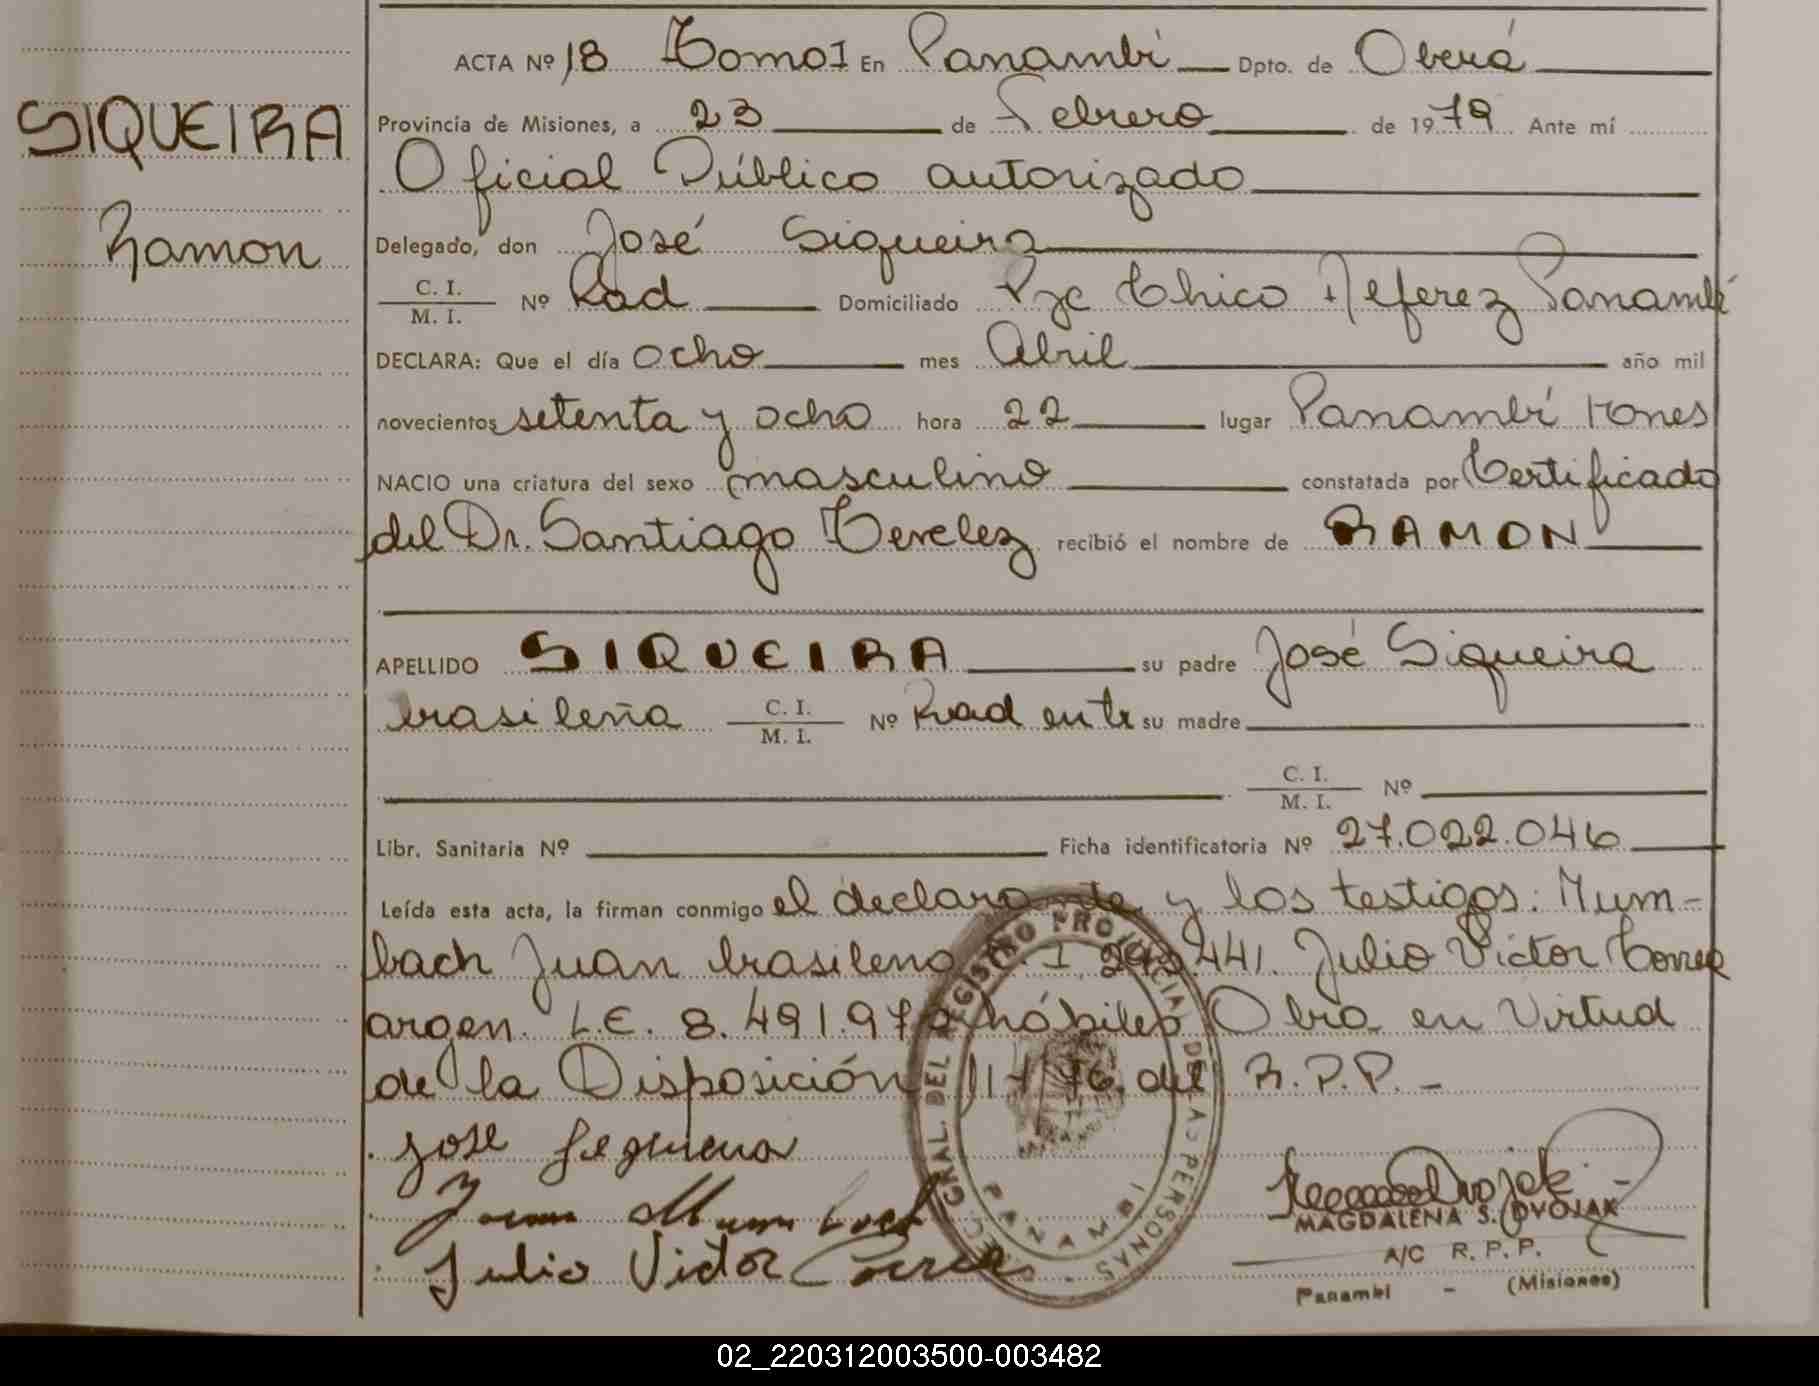 ACTA Nº 18 Tomo I En Panambí Dpto. de Oberá
SIQUEIRA
Ramon
Provincia de Misiones, a 23 de Febrero de 1979 Ante mí
Oficial Público autorizado
Delegado, don José Siqueira
C. I.
M. I. Nº Rad Domiciliado Chico Alferez Panambí
DECLARA: Que el día ocho mes Abril año mil
novecientos setenta y ocho hora 22 lugar Panambí
NACIO una criatura del sexo masculino constatada por Certificado
del Dr. Santiago recibió el nombre de RAMON
APELLIDO SIQUEIRA su padre José Siqueira
brasileña C. I.
M. I. Nº Rad su madre
C. I.
M. I. Nº
Libr. Sanitaria Nº Ficha identificatoria Nº 27.022.046
Leída esta acta, la firman conmigo el declarante y los testigos: Mum-
bach Juan brasileno I 441. Julio Victor Correa
argen. L.E. 8.491.97 hábiles Obra en Virtud
de la Disposición 11-76. del R.P.P.-
Jose
Juan Mumbach
Julio Victor
DIREC. GRAL. DEL REGISTRO PROVINCIAL DE LAS PERSONAS
PANAMBI
MAGDALENA S. DVOJAK
A/C R. P. P.
Panambi - (Misiones)
02_220312003500-003482